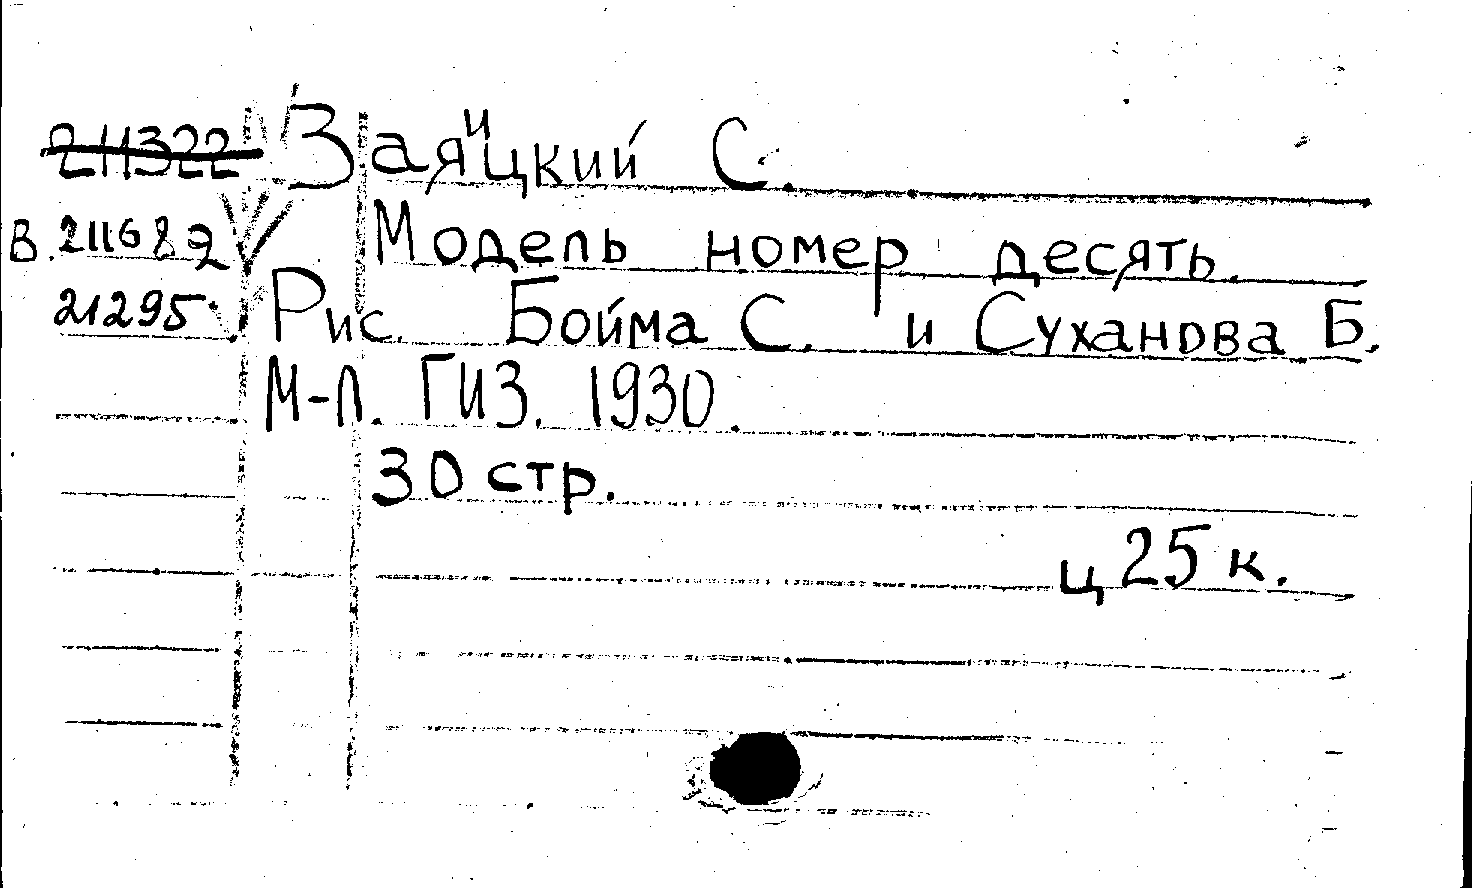 211322 Заяицкий С.
В. 211682 Модель номер десять.
21295 Рис. Бойма С. и Суханова Б.
М-Л. ГИЗ. 1930.
30 стр.
ц 25 к.